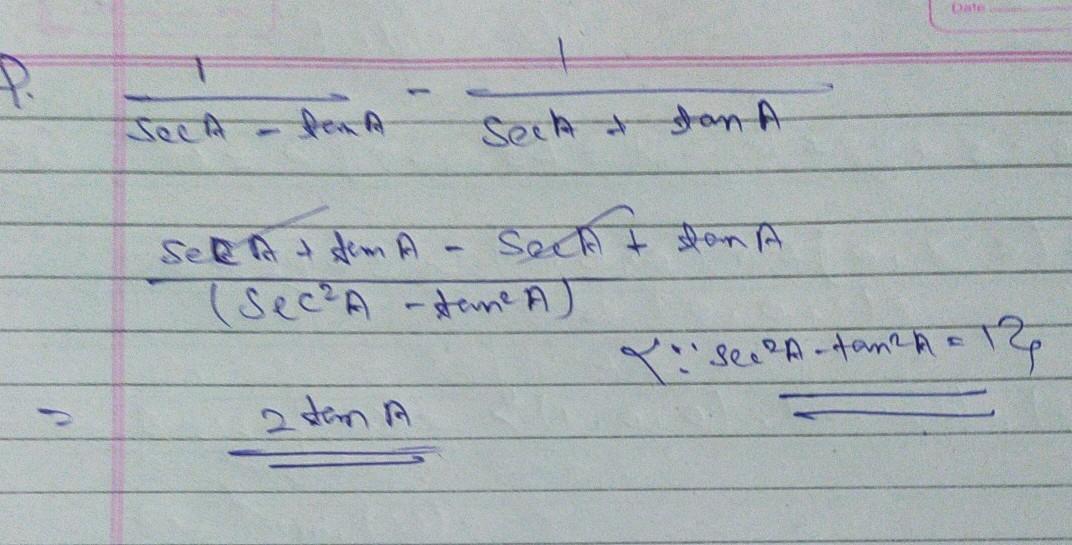 Date
P.
1 / (SecA - tanA) - 1 / (SecA + tanA)
(SecA + tanA - SecA + tanA) / (Sec²A - tan²A)
{∵ sec²A - tan²A = 1}
= 2 tan A